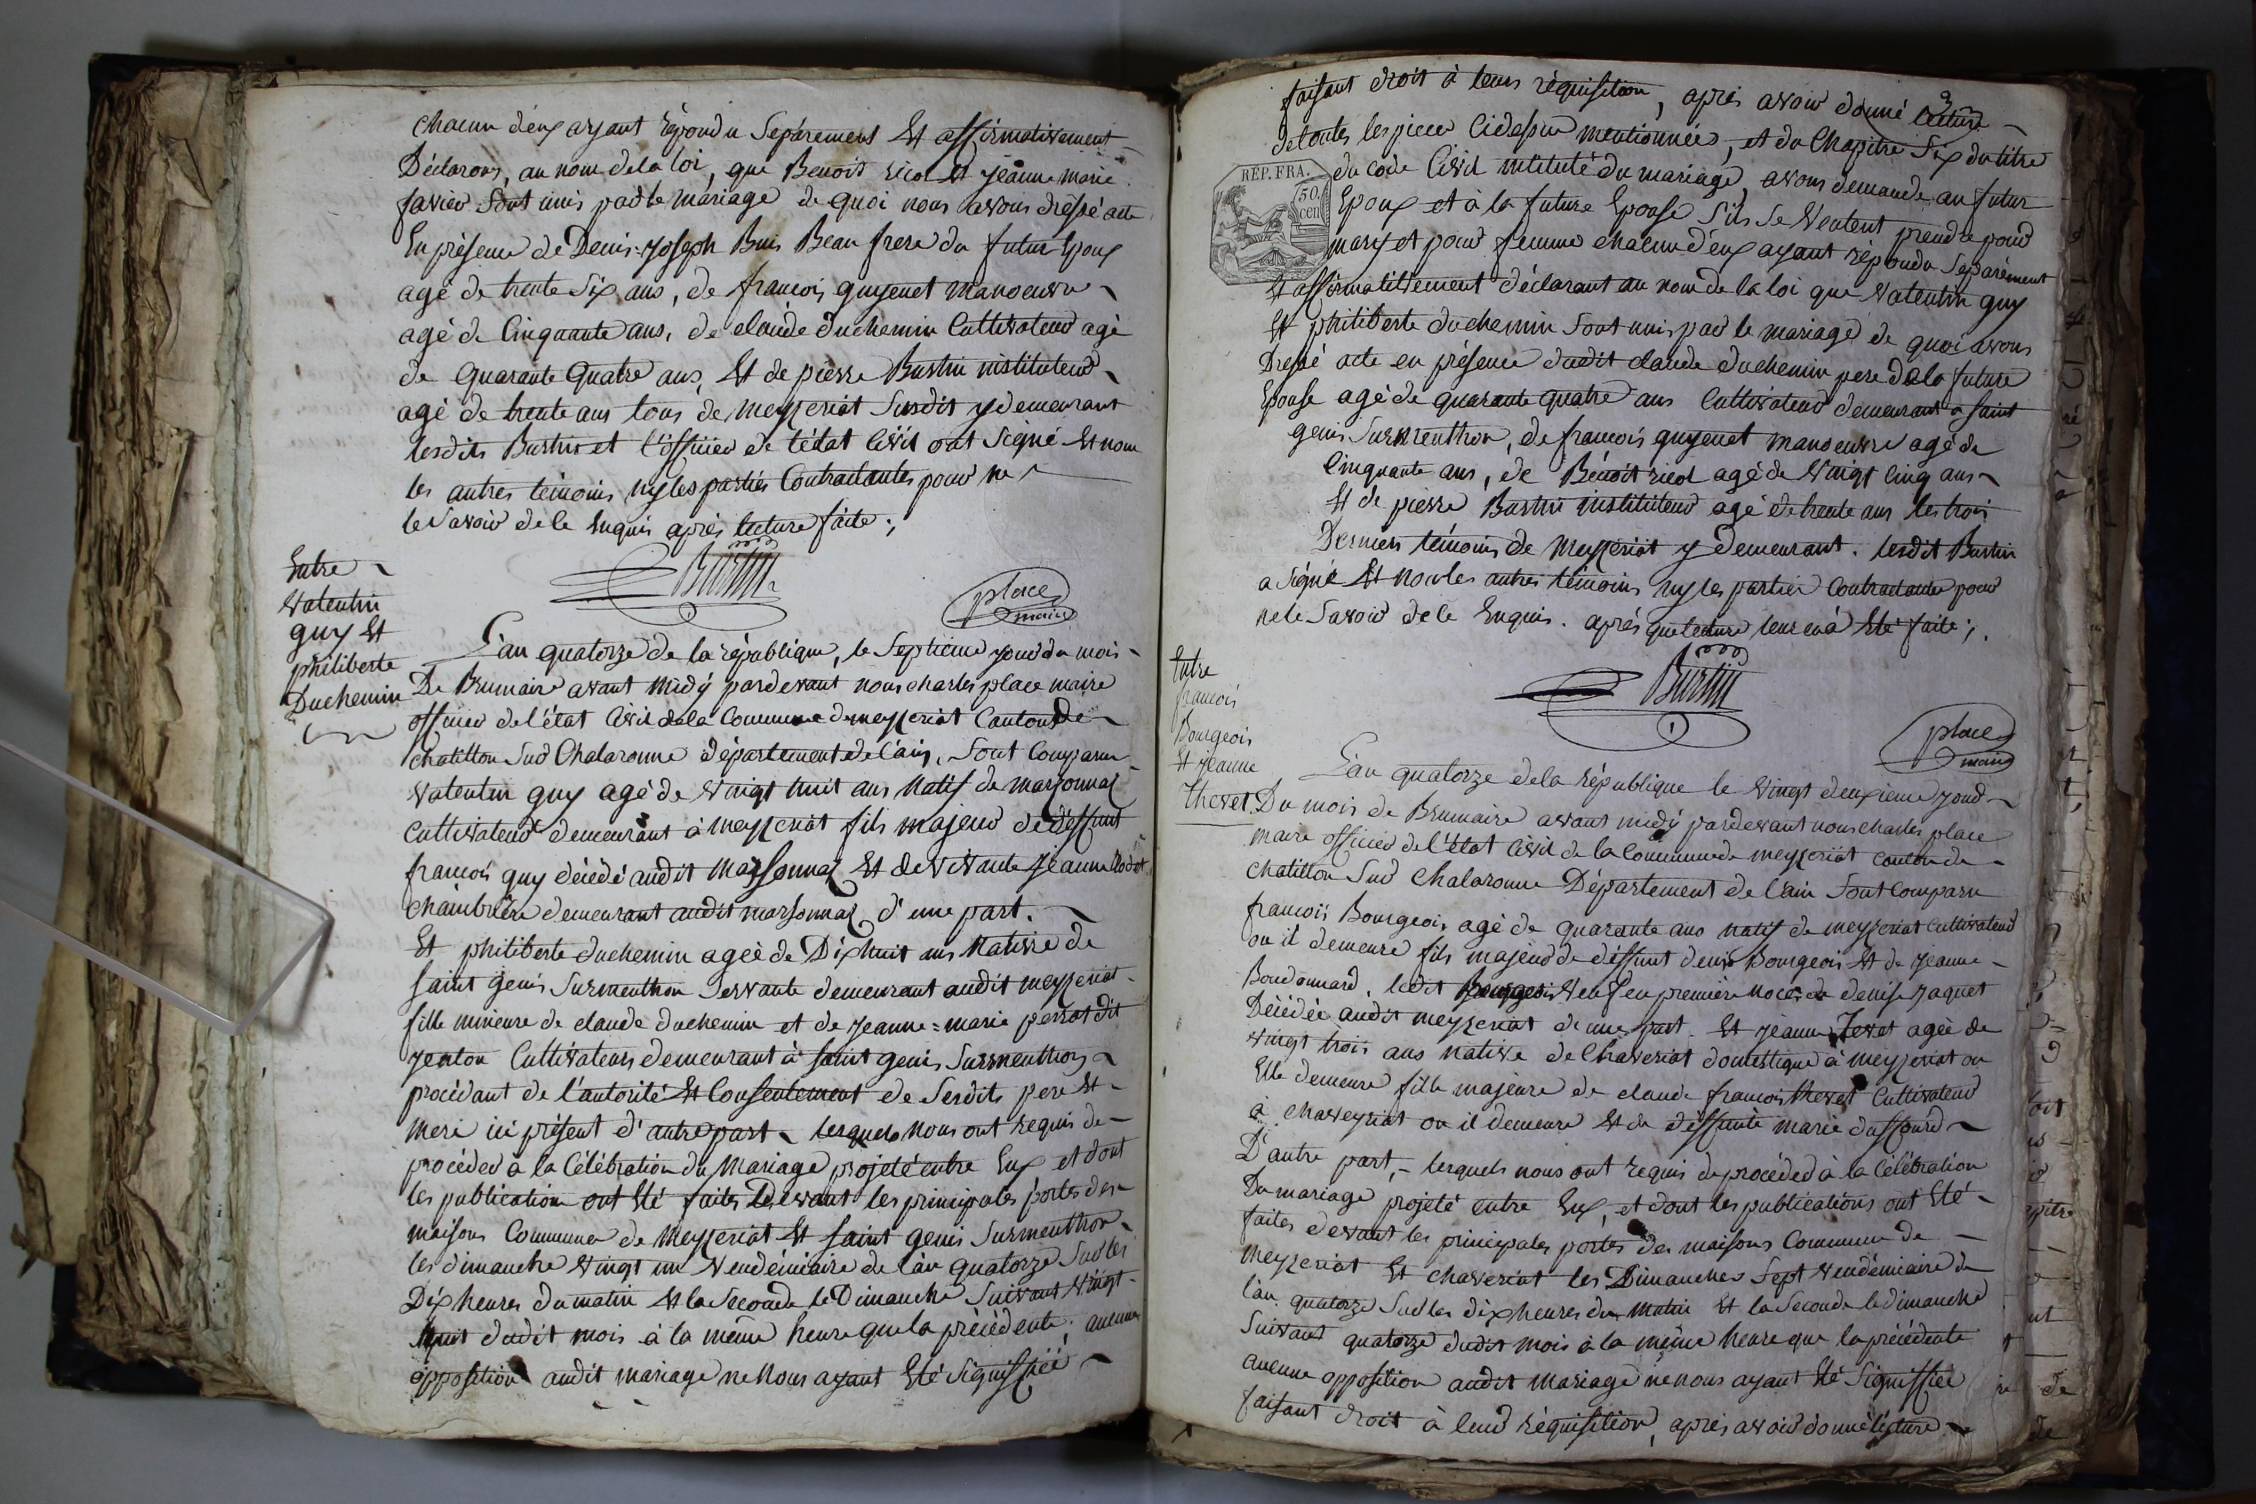 chacun d'eux ayant répondu Séparement Et affirmativement
Déclarons, au nom de la loi, que Benoit Riol Et jeanne marie
favier Sont unis par le mariage de quoi nous avons dressé acte
En présence de Denis-joseph Buis Beau frere du futur Epoux
agé de trente Six ans, de françois guyenet manoeuvre
agé de Cinquante ans, de claude duchemin Cultivateur agé
de quarante quatre ans, Et de pierre Burtin instituteur
agé de trente ans tous de meyzeriat Susdit y demeurant
lesdits Burtin et l'officier de l'état Civil ont Signé Et non
les autres témoins ny les parties Contractantes pour ne
le Savoir de ce Enquis après lecture faite ;
Burtin
place
maire
Entre
Valentin
guy Et
philiberte
Duchemin
L'an quatorze de la république, le Septieme jour du mois
De Brumaire avant midy pardevant nous charles place maire
officier de l'état Civil de la Commune de meyzeriat Canton de
chatillon Sur Chalaronne département de l'ain, Sont Comparu
Valentin guy agé de Vingt huit ans Natif de marsonnaz
cultivateur demeurant à meyzeriat fils majeur de deffunt
françois guy décédé audit Marsonnaz Et de Vivante Jeanne
chambrière demeurant audit marsonnaz d'une part.
Et philiberte duchemin agée de Dixhuit ans Native de
Saint genis Surmenthon Servante demeurant audit meyzeriat
fille mineure de claude duchemin et de jeanne=marie perrat dit
jenton Cultivateurs demeurant à Saint genis Surmenthon
procédant de l'autorité Et Consentement de Sesdits pere Et
mere ici présent d'autre part lesquels Nous ont requis de
procéder à la Célébration du Mariage projeté entre Eux et dont
les publication ont Eté faites Devant les principales portes des
maisons Communes de Meyzeriat Et Saint genis Surmenthon
les dimanche Vingt un Vendémiaire de l'an quatorze Sur les
Dix heures du matin Et la Seconde le Dimanche Suivant Vingt
huit dudit mois à la même heure que la précédente ; aucune
opposition audit mariage ne Nous ayant Eté Signiffiée
faisant droit à leurs réquisition, après avoir donné lecture
de toutes les pieces Cidessus mentionnées, et du Chapitre Six du titre
RÉP. FRA.
50
cen
du code Civil intitulé du mariage, avons demandé au futur
Epoux et à la future Epouse S'ils Se Veulent prendre pour
mary et pour femme chacun d'eux ayant répondu Séparément
Et affirmativement déclarant au nom de la loi que Valentin guy
Et philiberte duchemin Sont unis par le mariage de quoi avons
Dressé acte en présence dudit claude duchemin pere de la future
Epouse agé de quarante quatre ans Cultivateur demeurant a Saint
genis Surmenthon, de françois guyenet manoeuvre agé de
Cinquante ans, de Bénoit riol agé de Vingt Cinq ans
Et de pierre Burtin instituteur agé de trente ans les trois
Derniers témoins de Meyzeriat y demeurant. lesdit Burtin
a Signé Et non les autres témoins ny les parties Contractantes pour
ne le Savoir de ce Enquis. après que lecture leur en à Eté faite ;
Burtin
place
maire
Entre
françois
Bourgeois
Et jeanne
thevet
L'an quatorze de la république le Vingt deuxieme jour
Du mois de Brumaire avant midy pardevant nous charles place
maire officier de l'état Civil de la Commune de meyzeriat canton de
chatillon Sur Chalaronne Département de l'ain Sont Comparu
françois Bourgeois agé de quarante ans natif de meyzeriat Cultivateur
ou il demeure fils majeur de deffunt denis Bourgeois Et de jeanne
Boudonnard, ledit Bourgeois Veuf en premiere noces de denise jaquet
Décédée audit meyzeriat d'une part. Et jeanne Tevet agée de
Vingt trois ans native de Chaveriat domestique à meyzeriat ou
Elle demeure fille majeure de claude françois thevet Cultivateur
à chaveyriat ou il demeure Et de deffunte marie duffourd
D'autre part, lesquels nous ont requis de procéder à la Célébration
Du mariage projeté entre Eux, et dont les publications ont Eté
faites devant les principales portes des maisons Commune de
meyzeriat Et chaveriat les Dimanches Sept Vendémiaire de
l'an quatorze Sur les dix heures du Matin Et la Seconde le dimanche
Suivant quatorze dudit mois à la même heure que la précédente
aucune opposition audit Mariage ne nous ayant Eté Signiffiée
faisant droit à leur réquisition, après avoir donné lecture